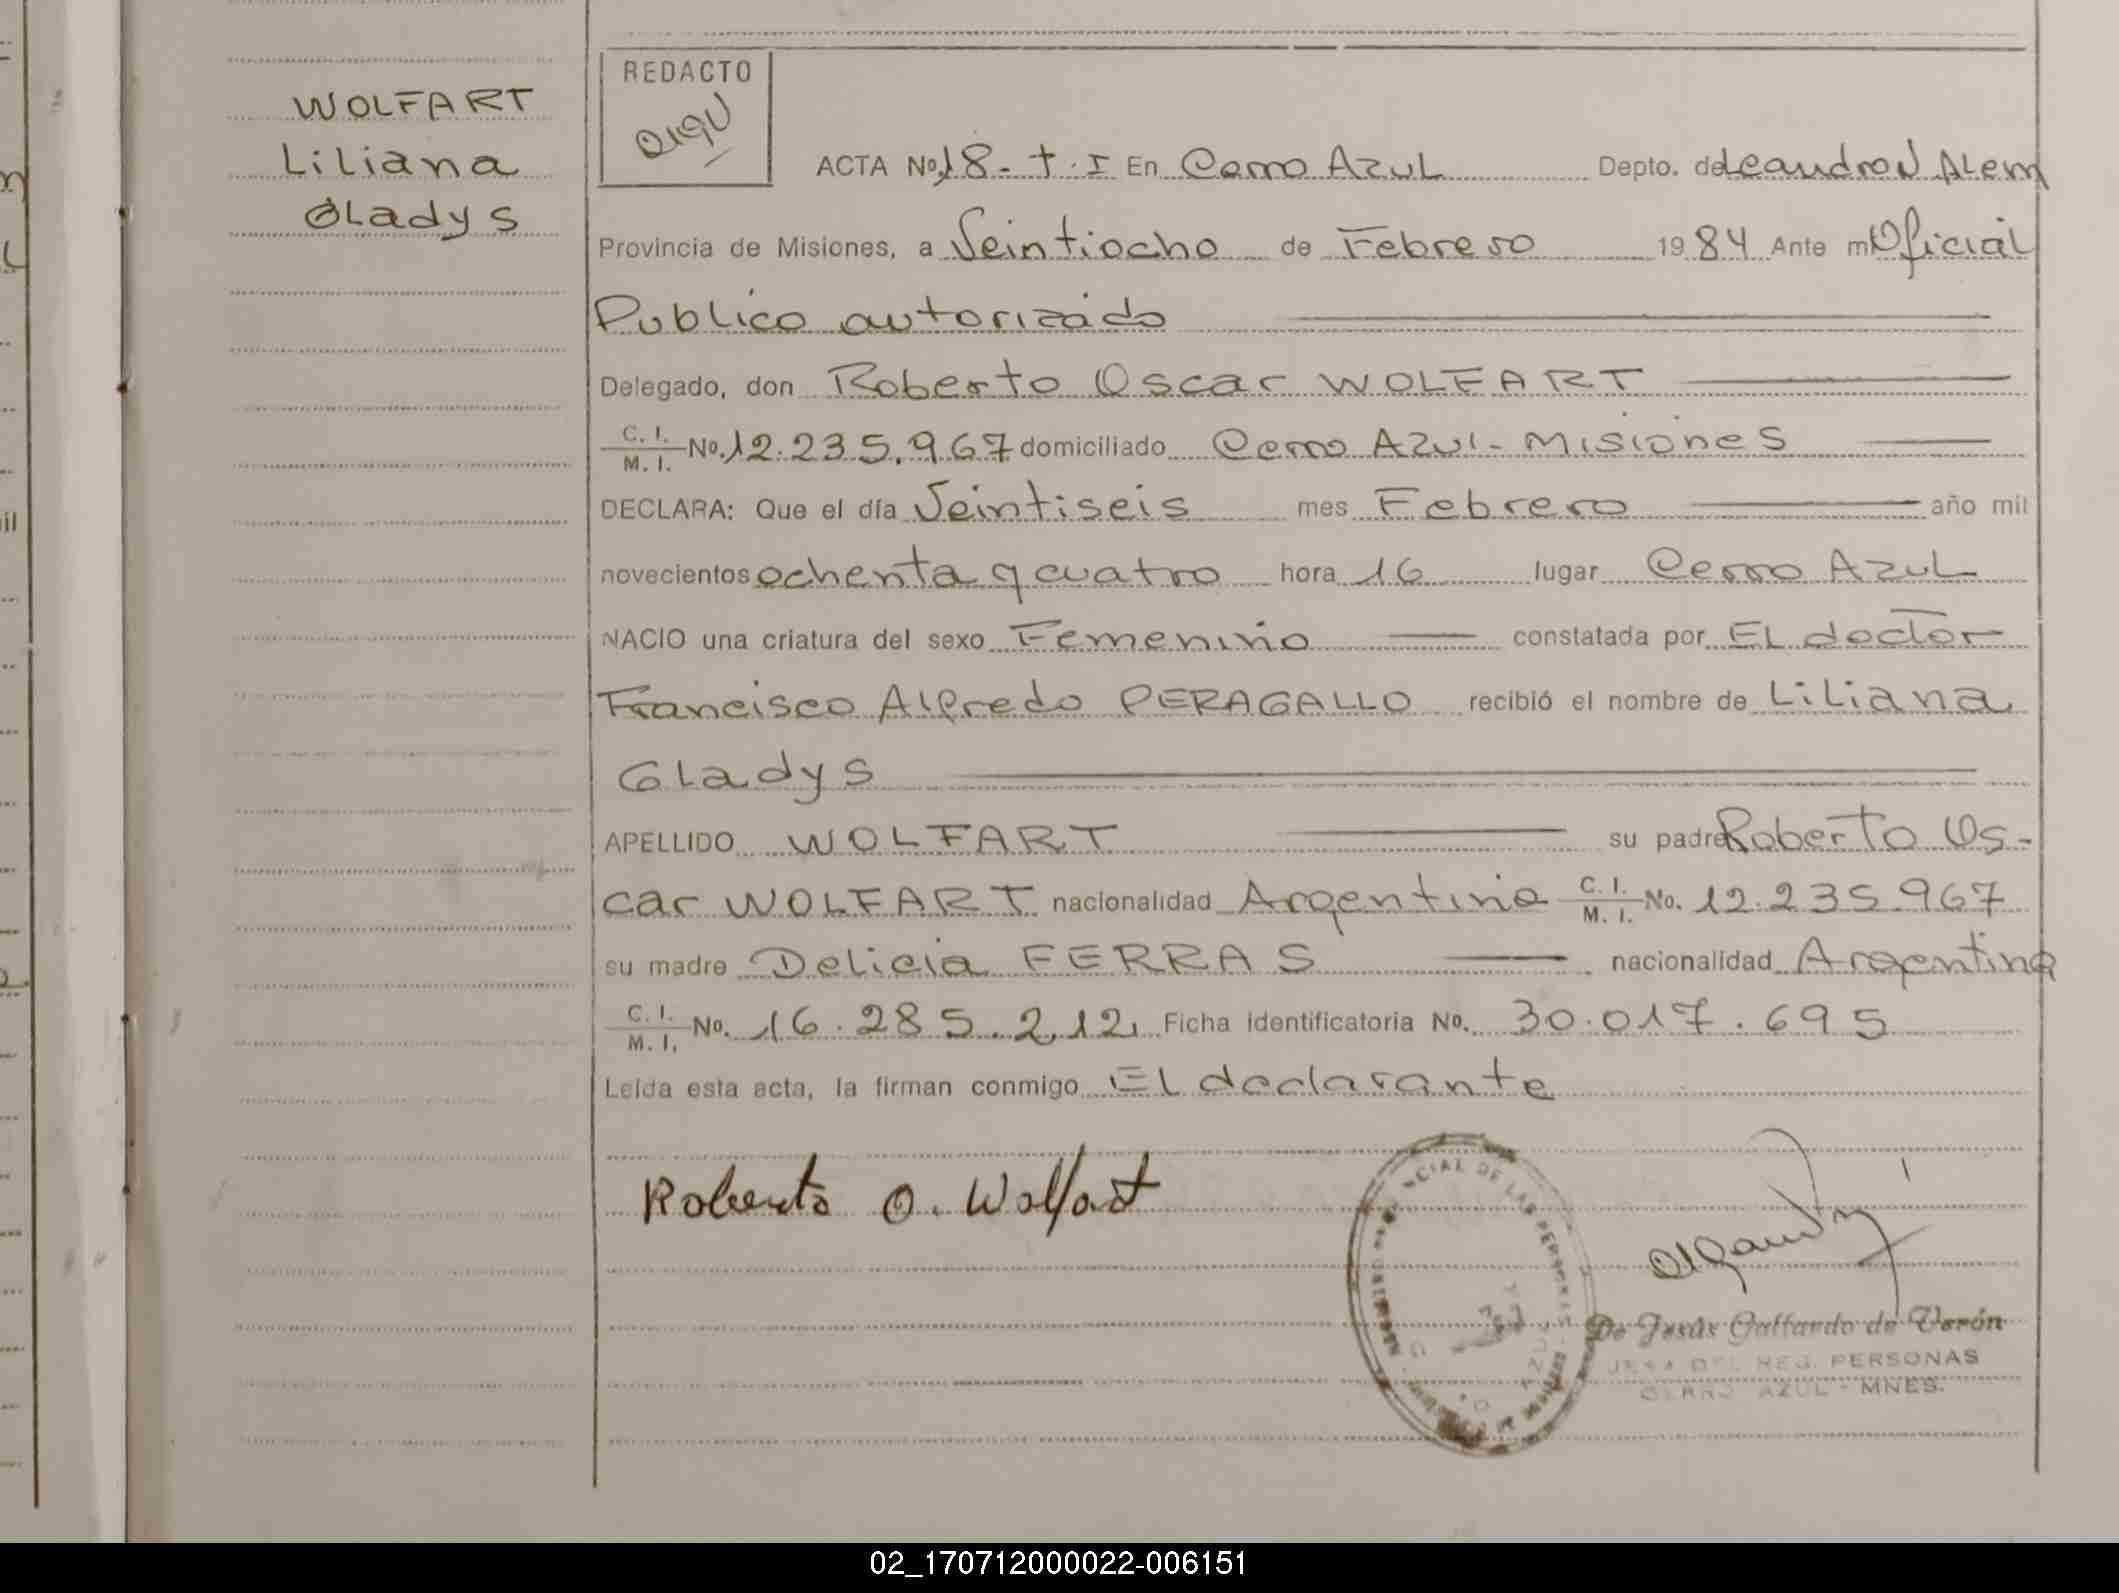 WOLFART
Liliana
Gladys
REDACTO
ACTA No. 18 - t. I En Cerro Azul Depto. de Leandro N Alem
Provincia de Misiones, a Veintiocho de Febrero 1984 Ante mi Oficial
Publico autorizado
Delegado, don Roberto Oscar WOLFART
C. I. M. I. No. 12.235.967 domiciliado Cerro Azul - Misiones
DECLARA: Que el día Veintiseis mes Febrero año mil
novecientos ochenta y cuatro hora 16 lugar Cerro Azul
NACIO una criatura del sexo Femenino constatada por El doctor
Francisco Alfredo PERAGALLO recibió el nombre de Liliana
Gladys
APELLIDO WOLFART su padre Roberto Os-
car WOLFART nacionalidad Argentina C. I. M. I. No. 12.235.967
su madre Delicia FERRAS nacionalidad Argentina
C. I. M. I. No. 16.285.212 Ficha identificatoria No. 30.017.695
Leída esta acta, la firman conmigo El declarante
Roberto O. Wolfart
CIAL DE LAS PERSONAS
De Jesús Gallardo de Verón
JEFA DEL REG. PERSONAS
CERRO AZUL - MNES.
02_170712000022-006151